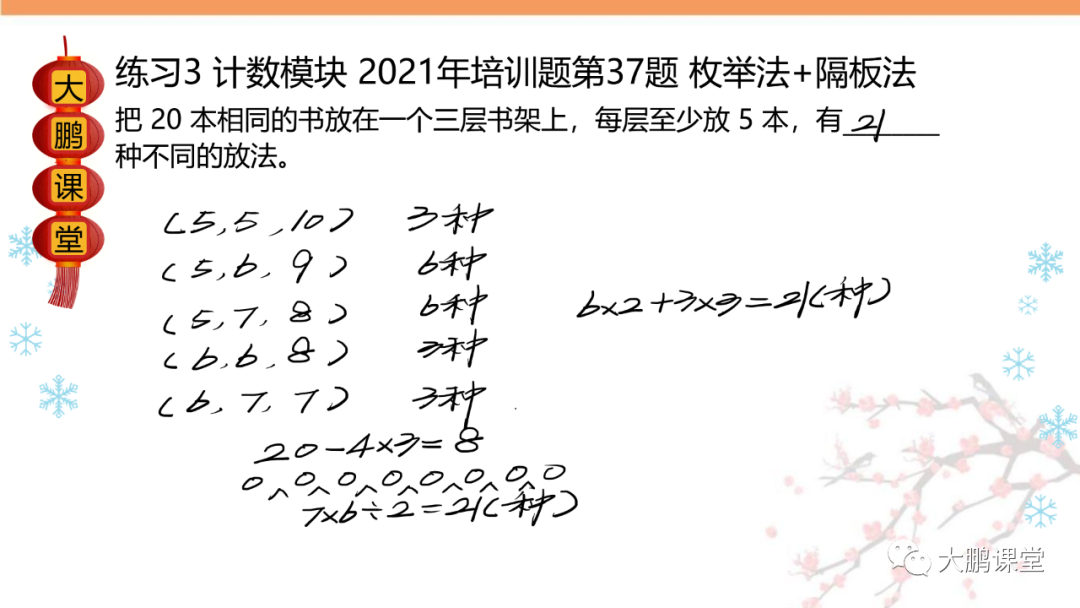 大鹏课堂
练习3 计数模块 2021年培训题第37题 枚举法+隔板法
把 20 本相同的书放在一个三层书架上，每层至少放 5 本，有 21
种不同的放法。
(5,5,10) 3种
(5,6,9) 6种
(5,7,8) 6种
(6,6,8) 3种
(6,7,7) 3种
6×2+3×3=21(种)
20-4×3=8
0^0^0^0^0^0^0^0
7×6÷2=21(种)
大鹏课堂